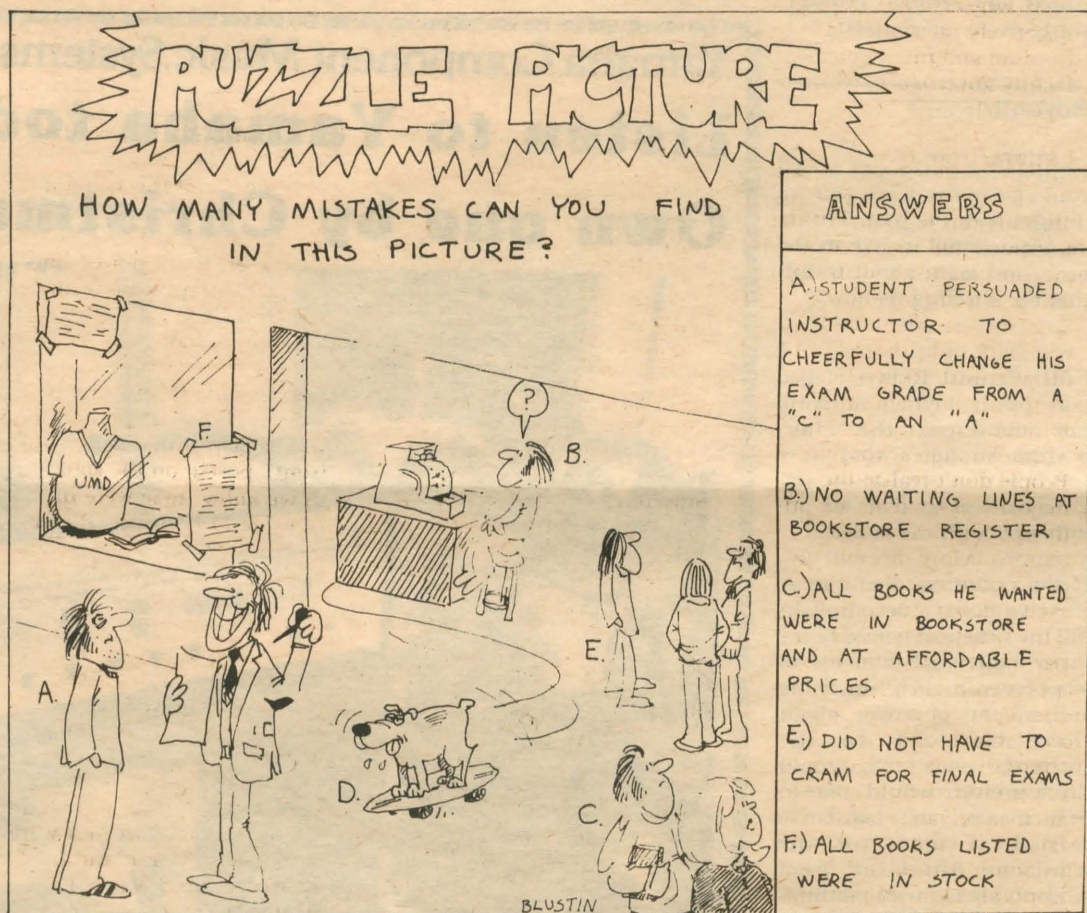 PUZZLE PICTURE
HOW MANY MISTAKES CAN YOU FIND
IN THIS PICTURE?
F.
UMD
?
B.
A.
E.
D.
C.
BLUSTIN
ANSWERS
A.) STUDENT PERSUADED
INSTRUCTOR TO
CHEERFULLY CHANGE HIS
EXAM GRADE FROM A
"C" TO AN "A"
B.) NO WAITING LINES AT
BOOKSTORE REGISTER
C.) ALL BOOKS HE WANTED
WERE IN BOOKSTORE
AND AT AFFORDABLE
PRICES
E.) DID NOT HAVE TO
CRAM FOR FINAL EXAMS
F.) ALL BOOKS LISTED
WERE IN STOCK